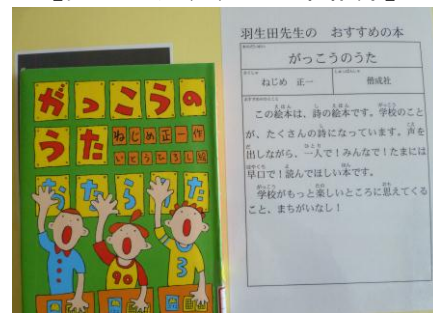 がっこうの
うた
ねじめ正一 作
いとうひろし 絵
おだらけた
90
3
羽生田先生の　おすすめの本
がっこうのうた
ねじめ　正一
偕成社
この絵本は、詩の絵本です。学校のこと
が、たくさんの詩になっています。声を
出しながら、一人で！みんなで！たまには
早口で！読んでほしい本です。
学校がもっと楽しいところに思えてくる
こと、まちがいなし！